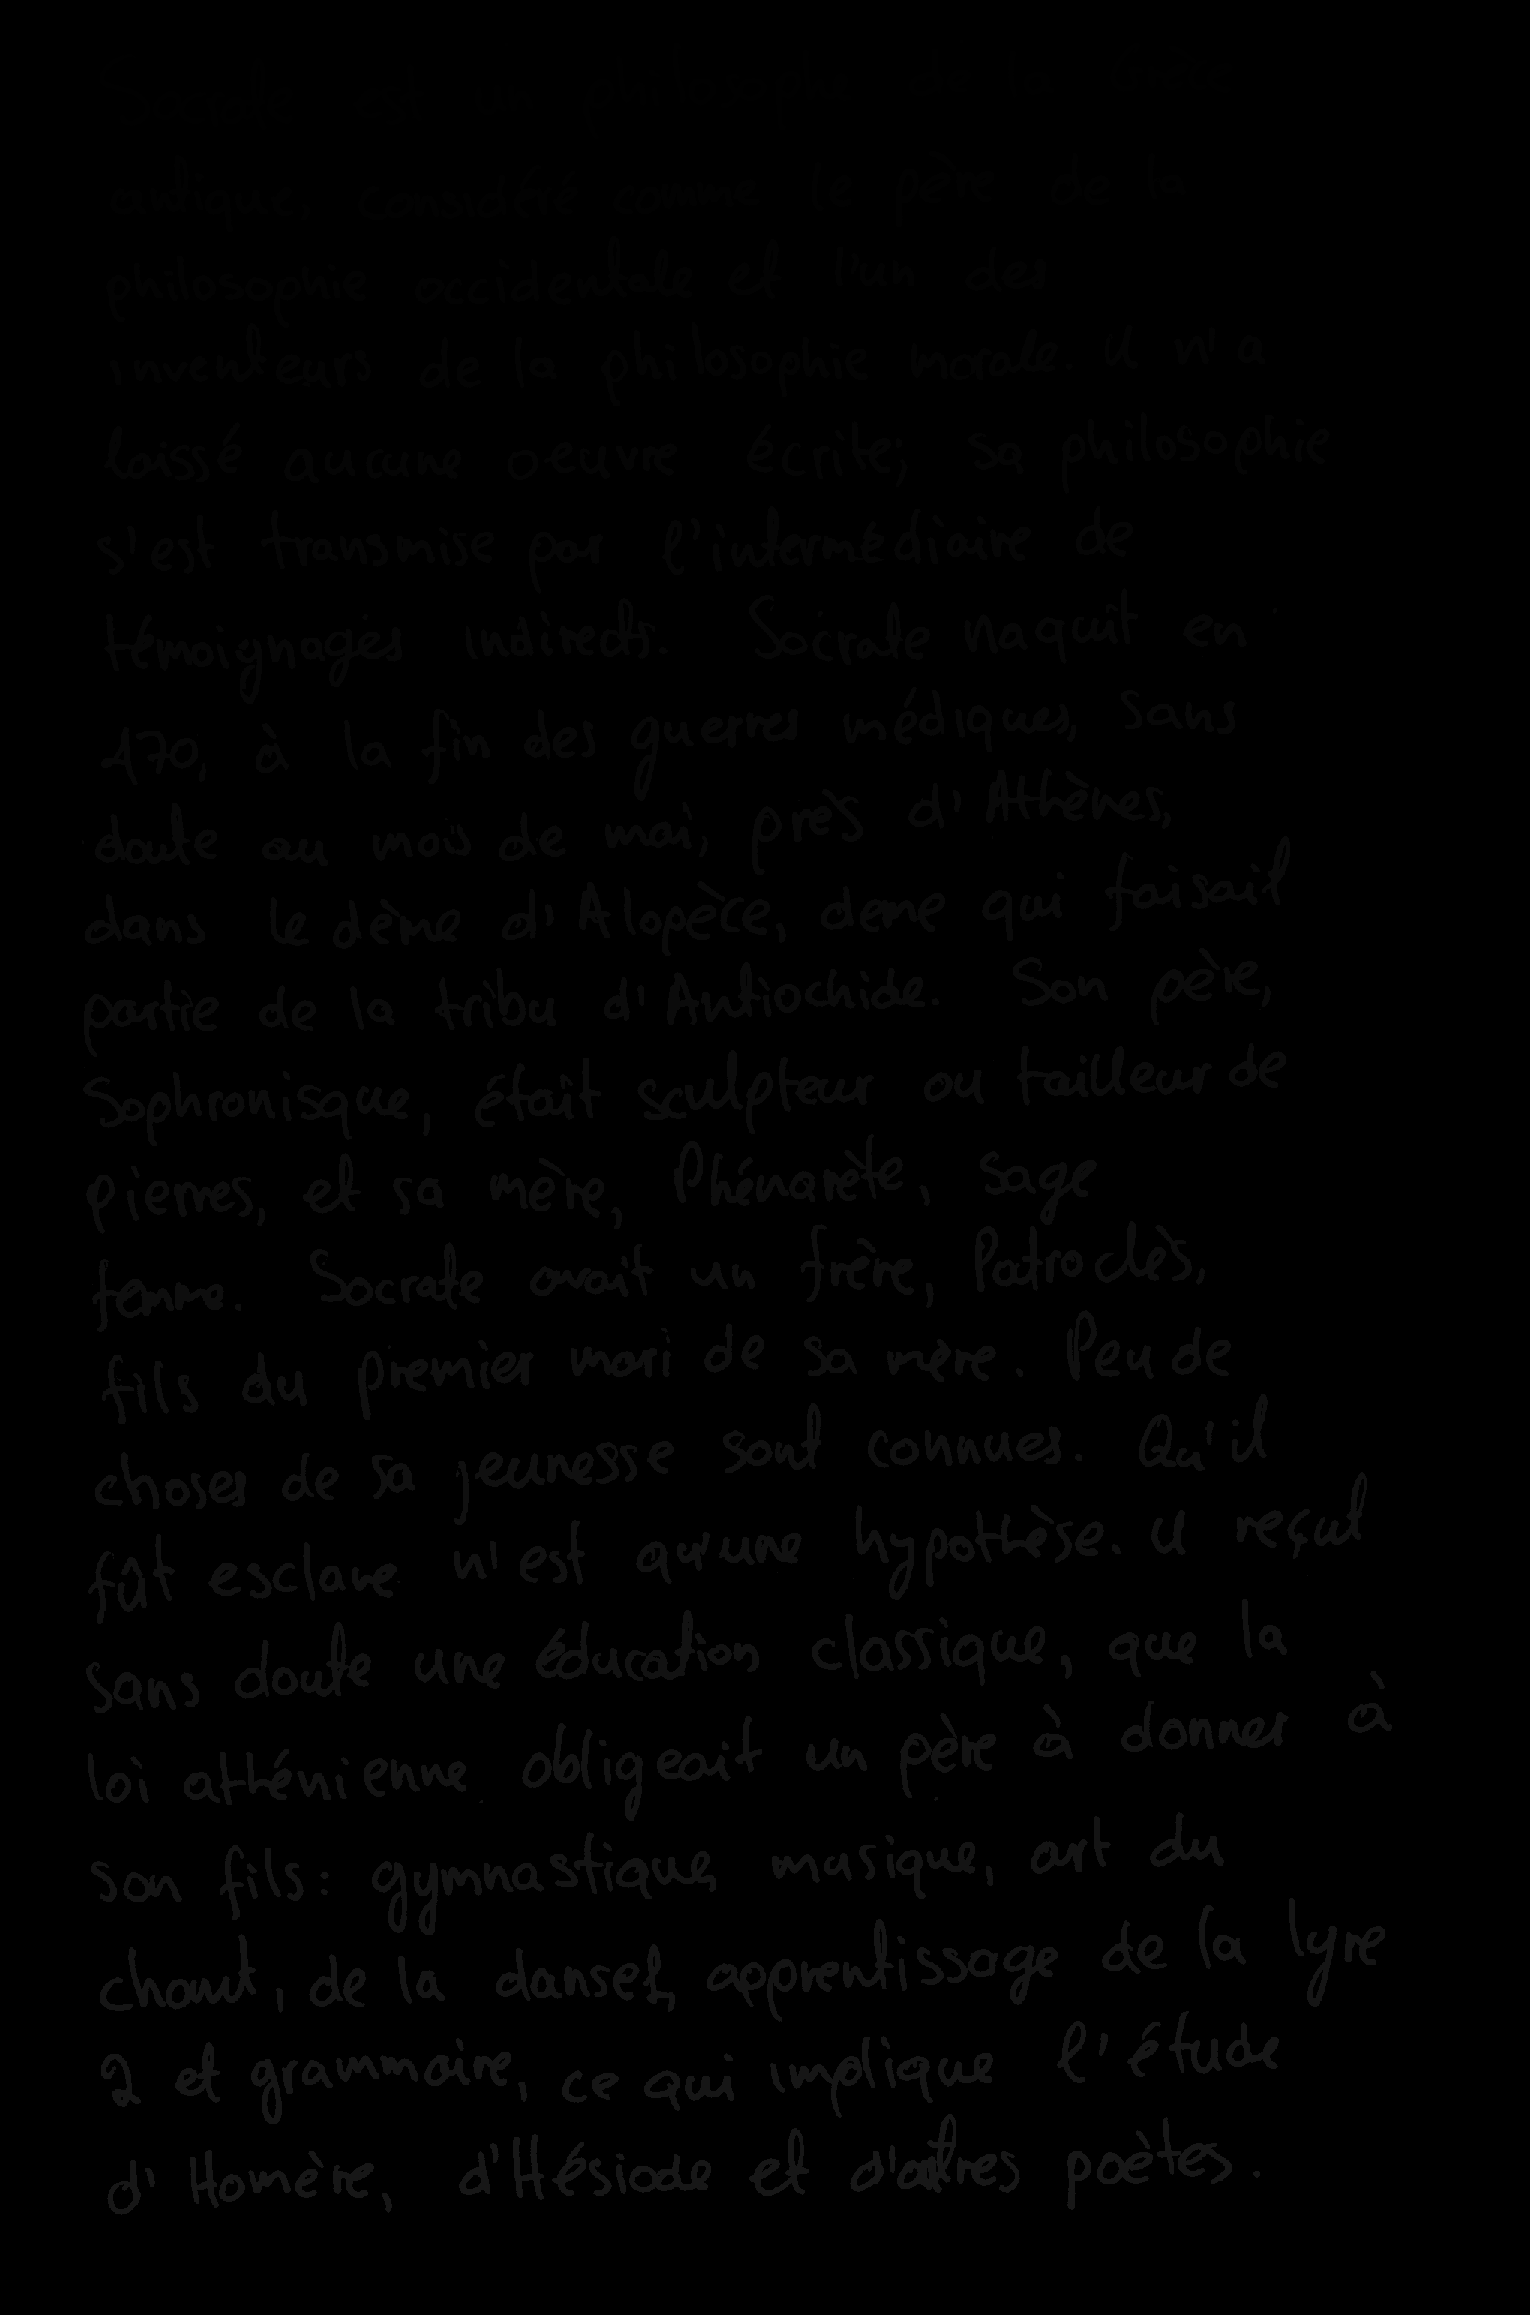 Socrate est un philosophe de la Grèce
antique, considéré comme le père de la
philosophie occidentale et l'un des
inventeurs de la philosophie morale. Il n'a
laissé aucune oeuvre écrite; sa philosophie
s'est transmise par l'intermédiaire de
témoignages indirects. Socrate naquit en
470, à la fin des guerres médiques, sans
doute au mois de mai, près d'Athènes,
dans le dème d'Alopèce, deme qui faisait
partie de la tribu d'Antiochide. Son père,
Sophronisque, était sculpteur ou tailleur de
pierres, et sa mère, Phénarète, sage
femme. Socrate avait un frère, Patroclès,
fils du premier mari de sa mère. Peu de
choses de sa jeunesse sont connues. Qu'il
fût esclave n'est qu'une hypothèse. Il reçut
sans doute une éducation classique, que la
loi athénienne obligeait un père à donner à
son fils: gymnastique, musique, art du
chant, de la danset, apprentissage de la lyre
2 et grammaire, ce qui implique l'étude
d'Homère, d'Hésiode et d'autres poètes.